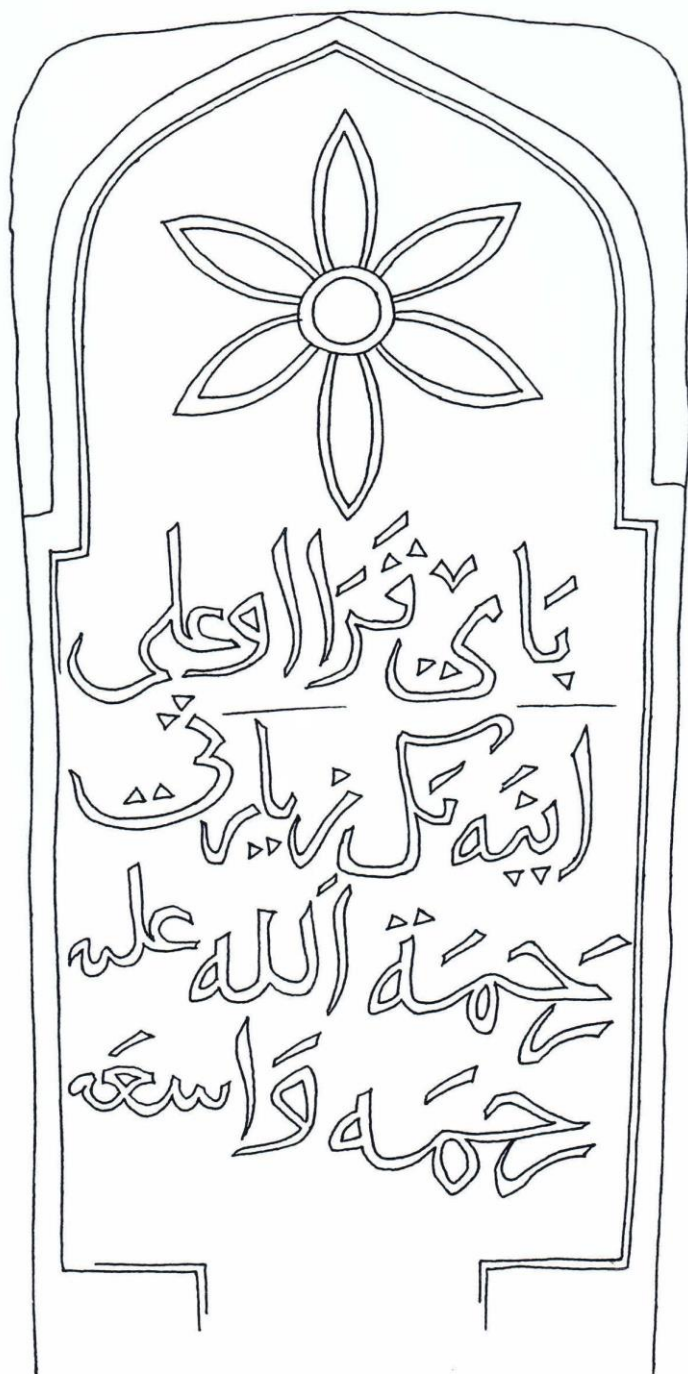 بَايْ قَرَا اوعلى
اينَه كَل زيارتي
رَحمَة اَلله عليه
رحمَه وَاسعَه